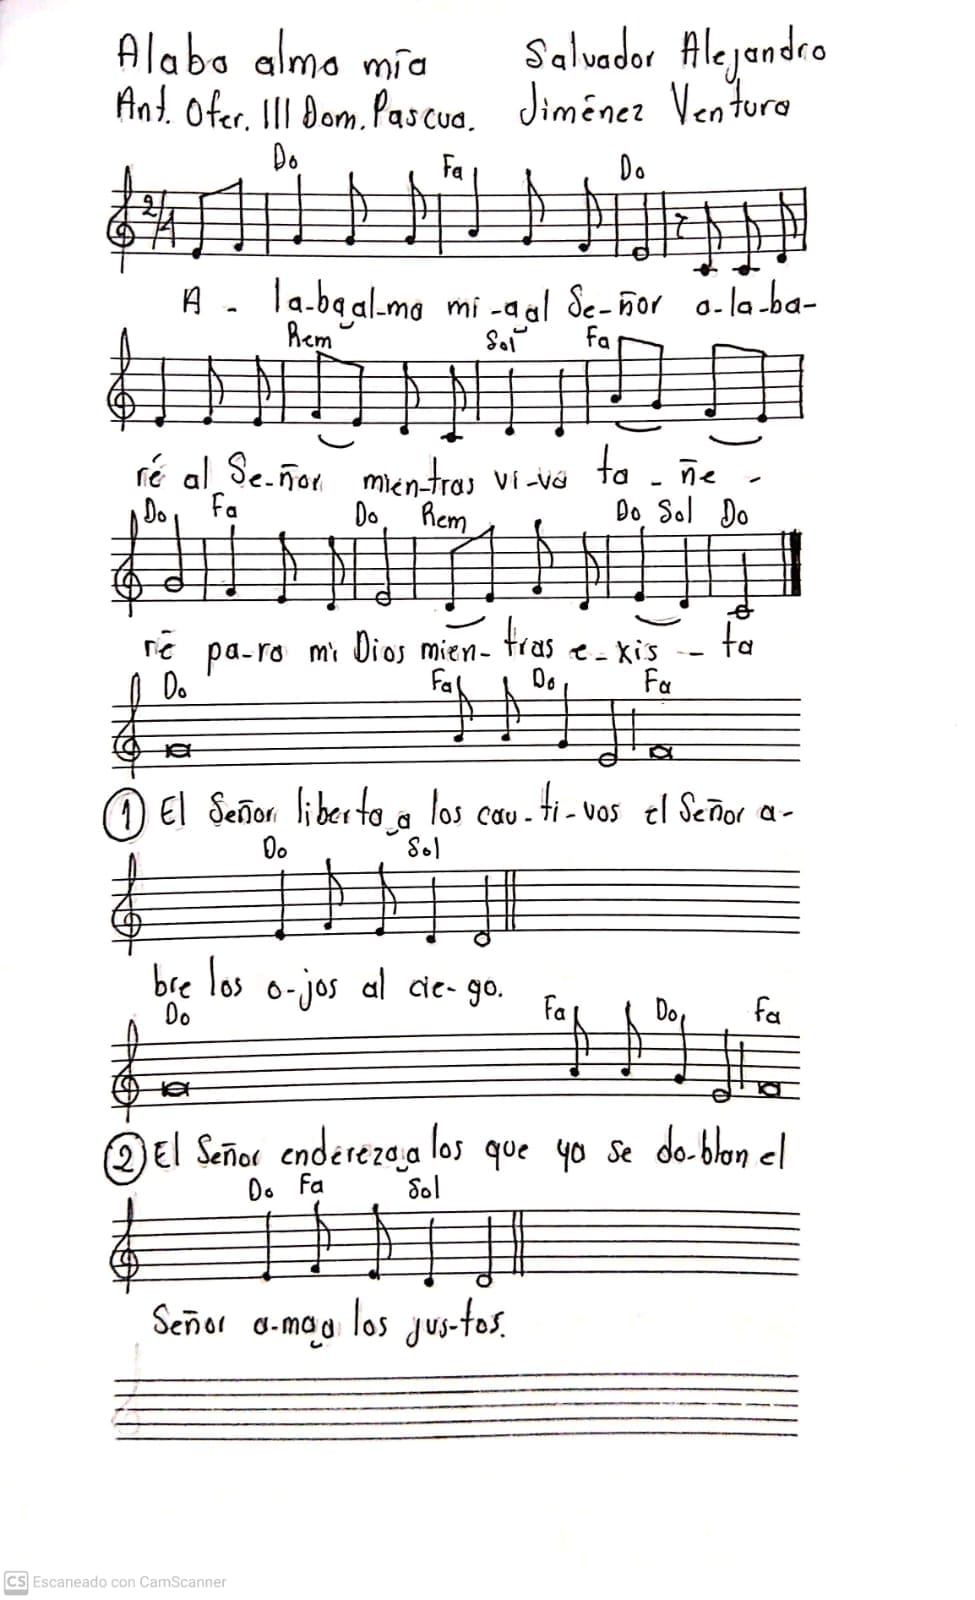 Alaba alma mía Salvador Alejandro
Ant. Ofer. III Dom. Pascua. Jiménez Ventura
Do Fa Do
2/4
A - la-ba al-ma mi-a al Se-ñor a-la-ba-
Rem Sol Fa
ré al Se-ñor mien-tras vi-va ta - ñe -
Do Fa Do Rem Do Sol Do
ré pa-ra mi Dios mien-tras e-xis - ta
Do Fa Do Fa
1 El Señor liberta a los cau-ti-vos el Señor a-
Do Sol
bre los o-jos al cie-go.
Do Fa Do Fa
2 El Señor endereza a los que ya se do-blan el
Do Fa Sol
Señor a-ma a los jus-tos.
CS Escaneado con CamScanner